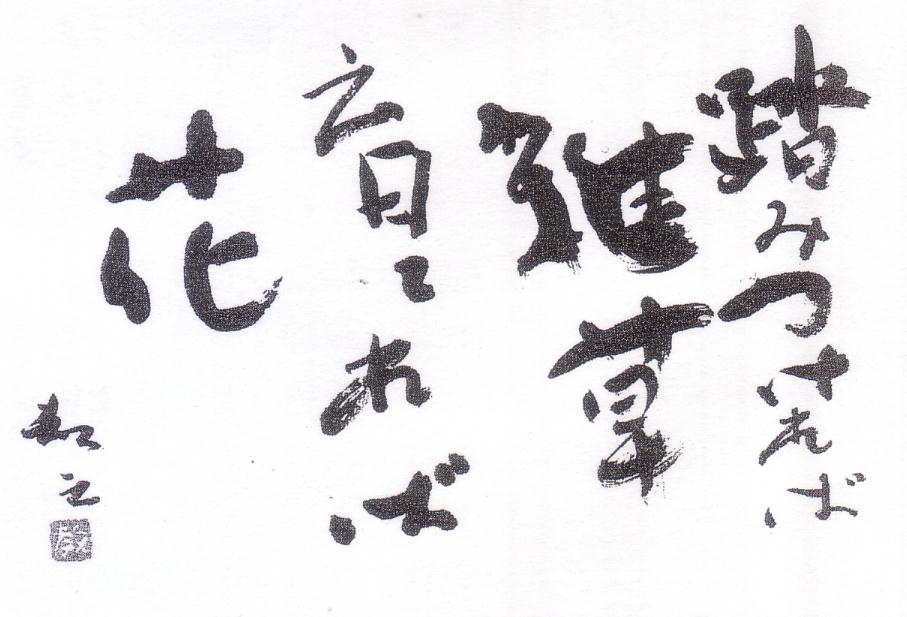 踏みつければ
雑草
育てれば
花